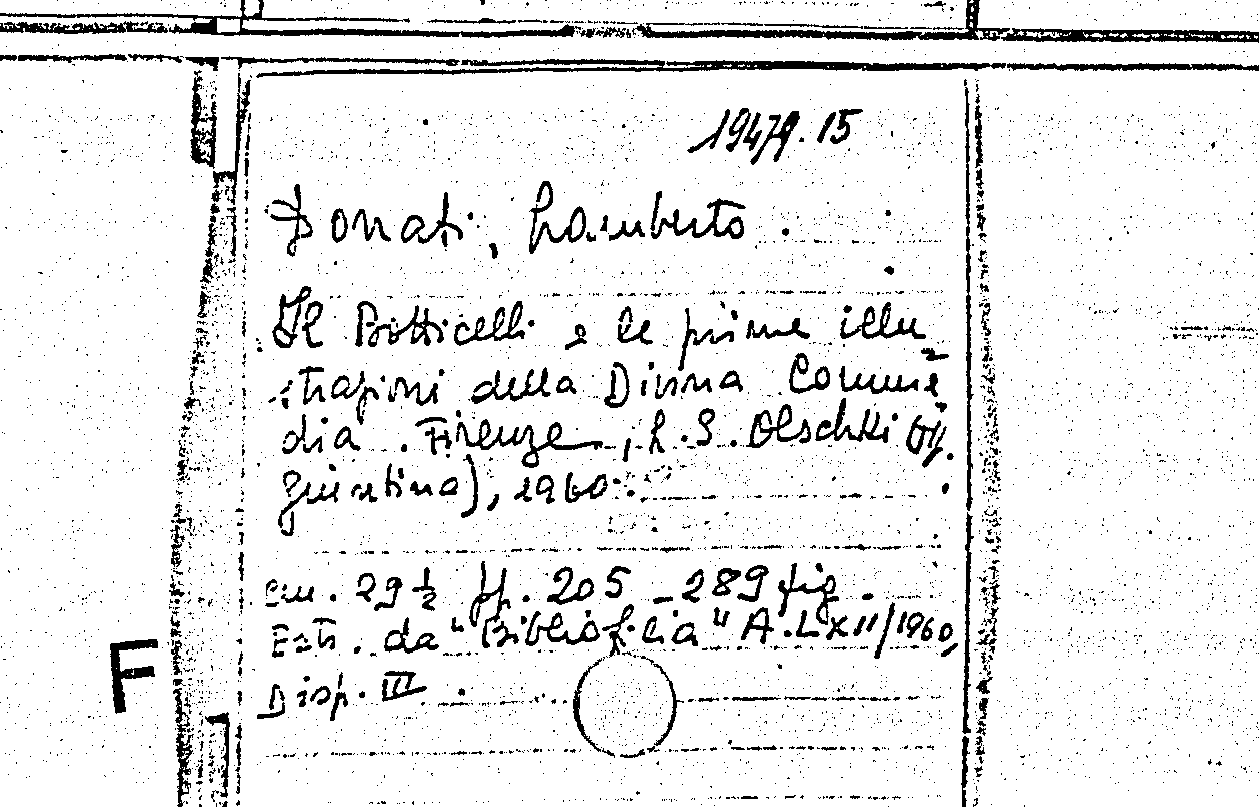 19479.15
Donati, Lamberto.
Il Botticelli e le prime illu
strazioni della Divina Comme
dia. Firenze, L. S. Olschki (Tip.
Giuntina), 1960.
cm. 29½ pp. 205-289 fig.
Estr. da "Bibliofilia" A. LXII/1960,
Disp. III.
F